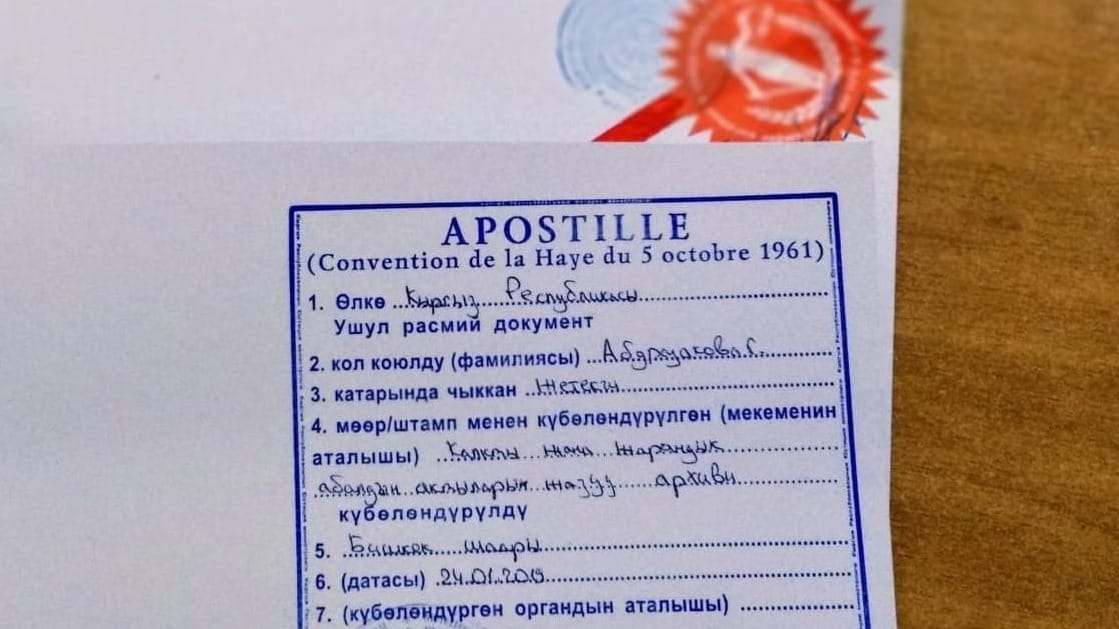 APOSTILLE
(Convention de la Haye du 5 octobre 1961)
1. Өлкө ...Кыргыз......Республикасы
Ушул расмий документ
2. кол коюлду (фамилиясы) ...
3. катарында чыккан ..Жетекчи
4. мөөр/штамп менен күбөлөндүрүлгөн (мекеменин
аталышы) ..Калкты....жана....жарандык
абалдын актыларын жазуу......архиви
күбөлөндүрүлдү
5. ..Бишкек.....шаары
6. (датасы) .24.01.2019
7. (күбөлөндүргөн органдын аталышы) ...............